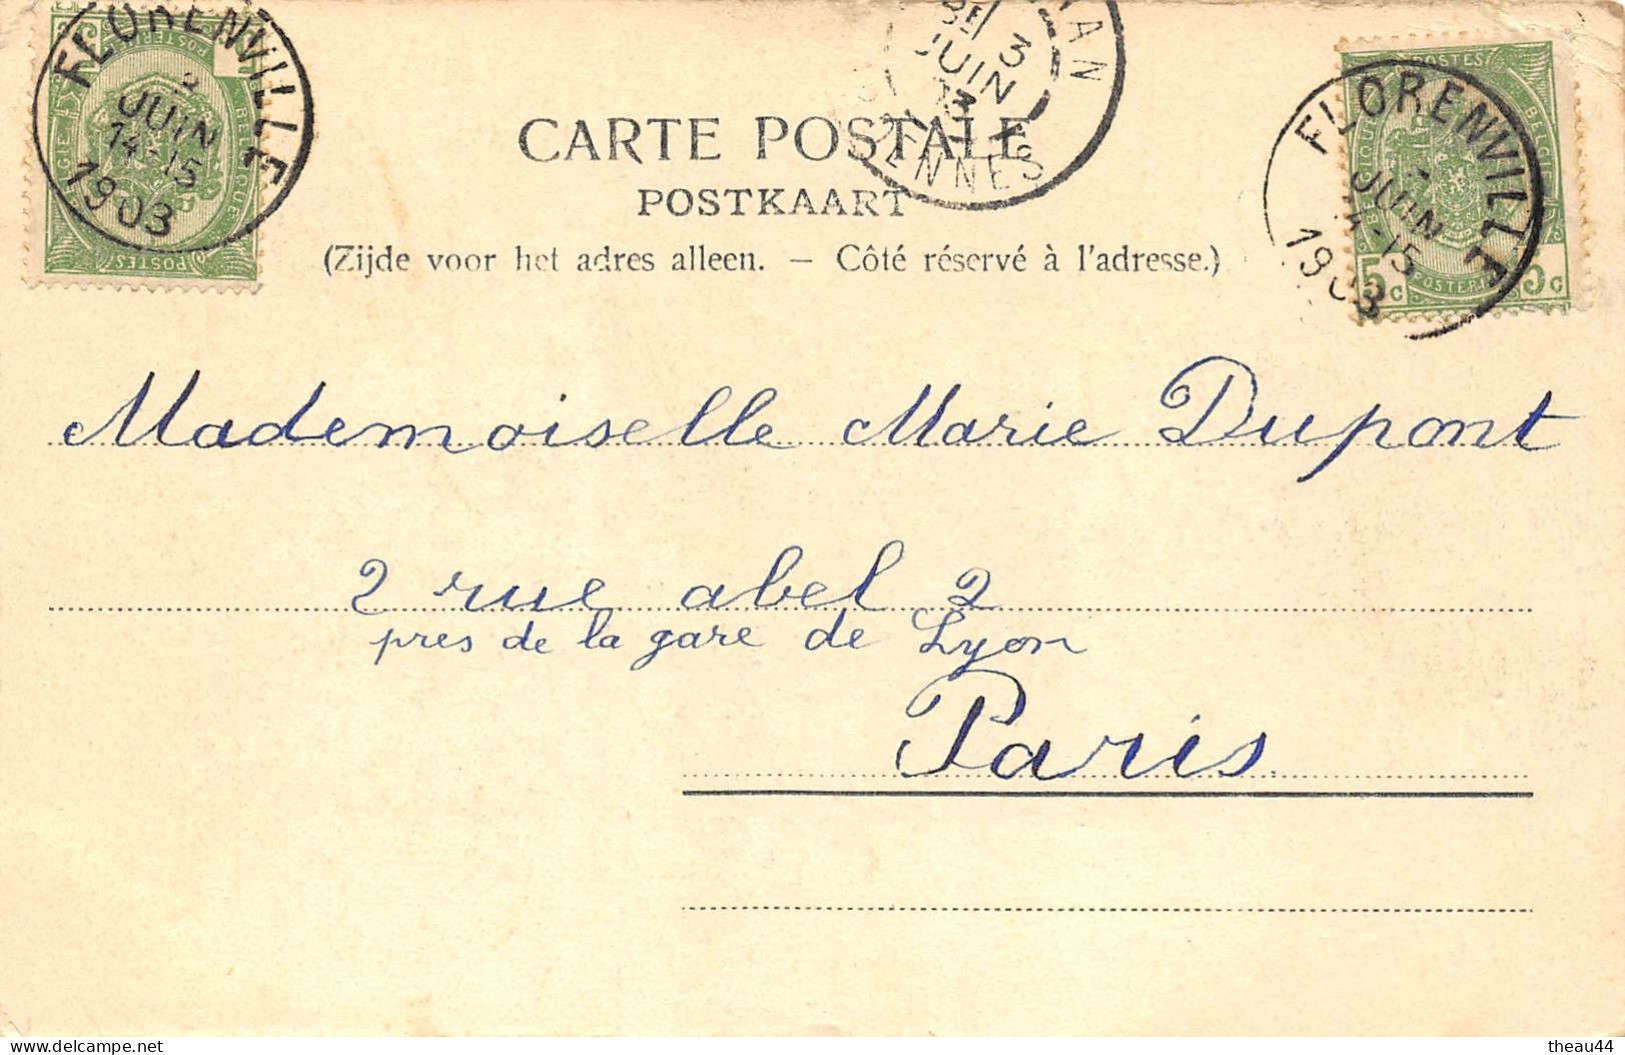 FLORENVILLE
2
JUIN
14-15
1903
POSTERIES
BELGIQUE
POSTES
3
JUIN
ENNES
CARTE POSTALE
POSTKAART
(Zijde voor het adres alleen. – Côté réservé à l'adresse.)
FLORENVILLE
JUIN
14-15
1903
POSTES
BELGIQUE
BELGIE
5c
POSTERIJEN
5c
Mademoiselle Marie Dupont
2 rue abel 2
pres de la gare de Lyon
Paris
theau44